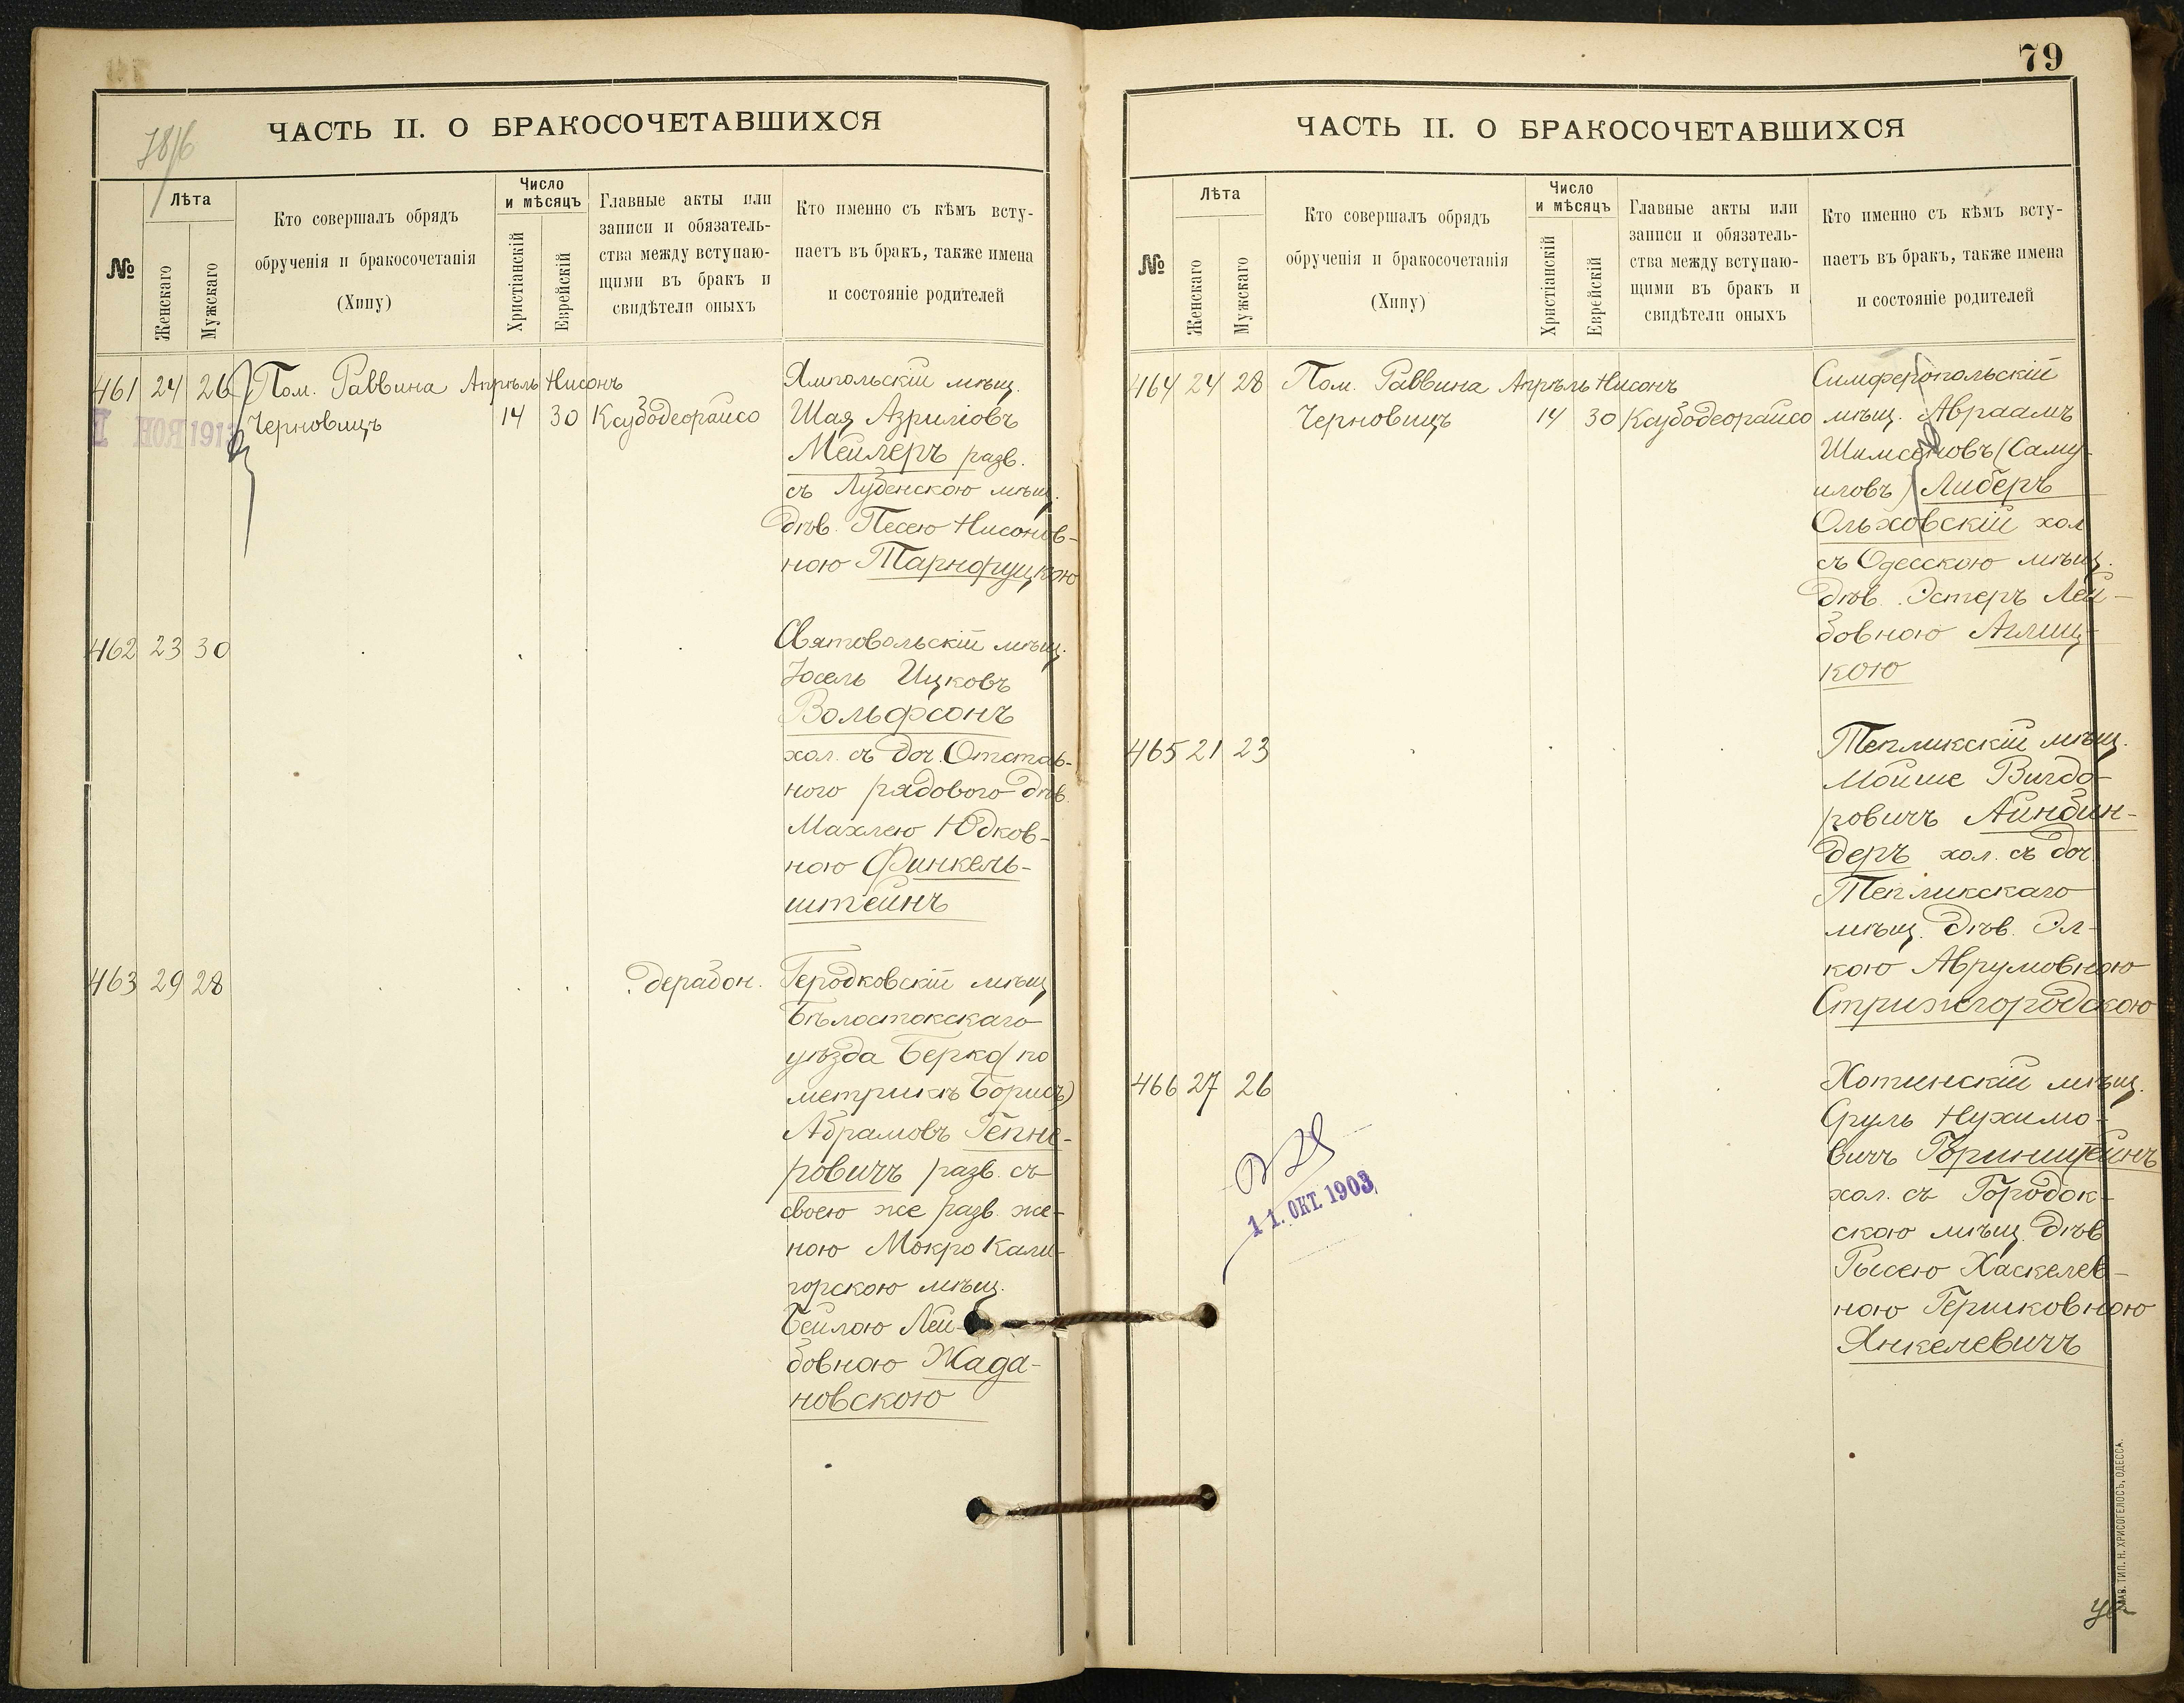 ЧАСТЬ II. О БРАКОСОЧЕТАВШИХСЯ
№
Лѣта
Женскаго
Мужскаго
Кто совершалъ обрядъ
обрученія и бракосочетанія
(Хипу)
Число
и мѣсяцъ
Христіанскій
Еврейскій
Главные акты или
записи и обязатель-
ства между вступаю-
щими въ бракъ и
свидѣтели оныхъ
Кто именно съ кѣмъ всту-
паетъ въ бракъ, также имена
и состояніе родителей
461 24 26 Пом. Раввина Апрѣль Нисонъ
Черновицъ 14 30
НОЯ 1913
Ямпольскій мѣщ.
Шая Азриліовъ
Мейлеръ разв.
съ Лубенскою мѣщ.
дѣв. Песею Нисонов-
ною Тарноруцкою
462 23 30
Юсель Ицковъ
Вольфсонъ
хол. съ доч. Отстав-
ного рядового дѣв.
Махлею Юдков-
ною Финкель-
штейнъ
463 29 28 дерабон.
Городковскій мѣщ
Бѣлостокскаго
уѣзда Берко (по
метрикѣ Борисъ)
Абрамовъ Гепне-
ровичъ разв. съ
своею же разв. же-
ною Мокро Кали-
горскою мѣщ.
Бейлою Лей-
бовною Жада-
новскою
79
ЧАСТЬ II. О БРАКОСОЧЕТАВШИХСЯ
№
Лѣта
Женскаго
Мужскаго
Кто совершалъ обрядъ
обрученія и бракосочетанія
(Хипу)
Число
и мѣсяцъ
Христіанскій
Еврейскій
Главные акты или
записи и обязатель-
ства между вступаю-
щими въ бракъ и
свидѣтели оныхъ
Кто именно съ кѣмъ всту-
паетъ въ бракъ, также имена
и состояніе родителей
464 24 28 Пом. Раввина Апрѣль Нисонъ
Черновицъ 14 30
Симферопольскій
мѣщ. Авраамъ
Шимсоновъ (Саму-
иловъ) Либеръ
Ольховскій хол
съ Одесскою мѣщ.
дѣв. Эстеръ Лей-
бовною Аглиц-
кою
465 21 23
Тепликскій мѣщ.
Мойше Вигдо-
ровичъ Айнбин-
деръ хол. съ доч
Тепликскаго
мѣщ. дѣв. Эл-
кою Аврумовною
Стрижгородскою
466 27 26
Хотинскій мѣщ.
Сруль Нухимо-
вичъ Горинштейнъ
хол. съ Городок-
скою мѣщ. дѣв
Рысею Хаскелев-
ною Гершковною
Янкелевичъ
11. ОКТ. 1903
СЛАВ. ТИП. Н. ХРИСОГЕЛОСЪ, ОДЕССА.